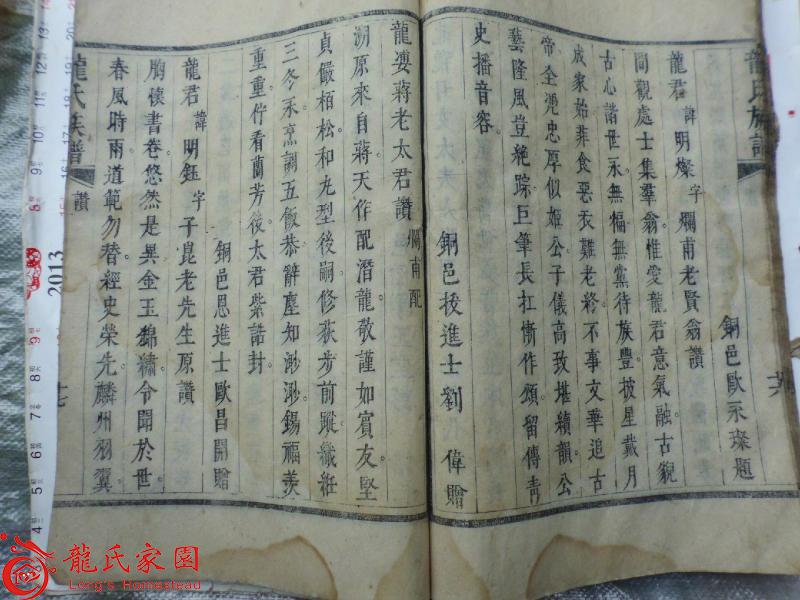 龍氏族譜
十六
銅邑歐永璨題
龍君諱明燦字爛甫老賢翁讚
間觀處士集羣翁惟愛龍君意氣融古貌
古心諧世永無褔無黨待族豐披星戴月
成家始菲食惡衣難老終不事文華追古
帝全凴忠厚似姬公子儀高致堪續韻公
藝隆風豈絶踪巨筆長扛慚作頌留傳青
史播音容
銅邑拔進士劉偉贈
龍婆蔣老太君讚爛甫配
溯原來自蔣天作配潛龍敬謹如賓友堅
貞嚴栢松和丸型後嗣修荻步前蹤織紝
三冬永烹調五飯恭辭塵知渺渺錫福羨
重重佇看蘭芳後太君紫誥封
銅邑恩進士歐昌開贈
龍君諱明鈺字子崑老先生原讚
胸懷書卷悠然是異金玉錦繡令聞於世
春風時雨道範勿替經史榮先麟州羽翼
龍氏族譜
讚
十七
2013
龍氏家園
Long's Homestead